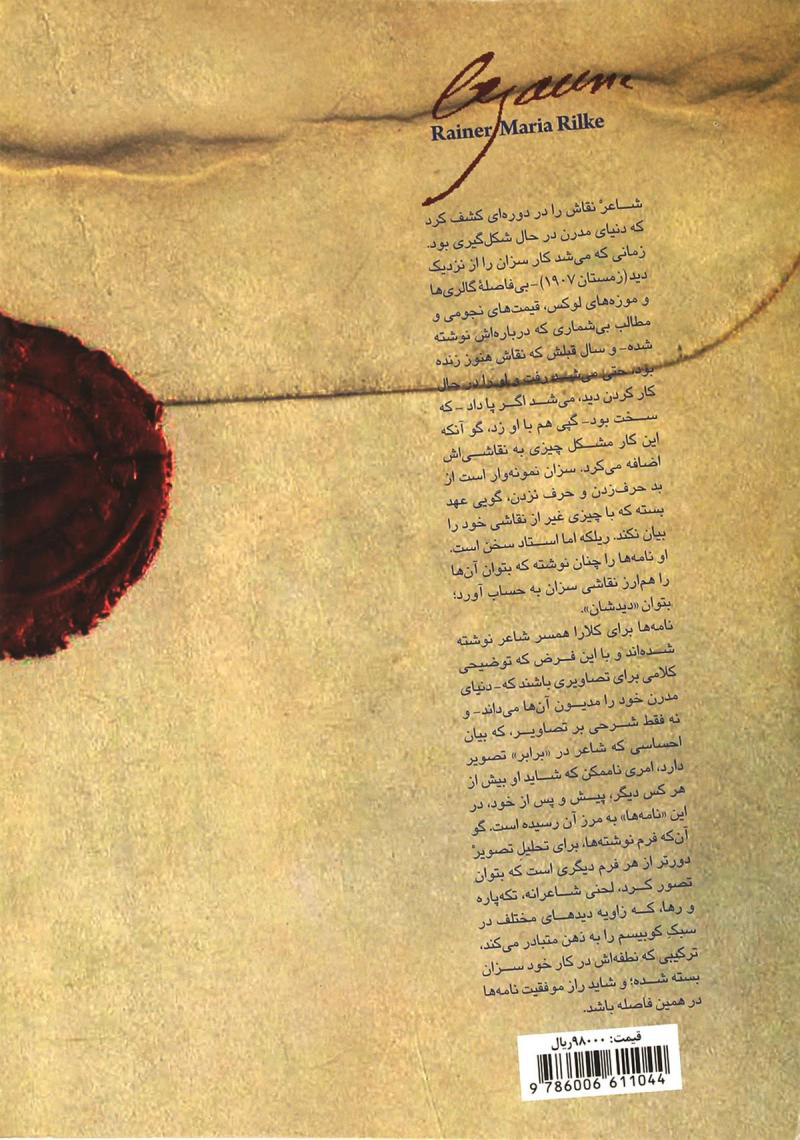 Cezanne
Rainer Maria Rilke
شاعرْ نقاش را در دوره‌ای کشف کرد
که دنیای مدرن در حال شکل‌گیری بود.
زمانی که می‌شد کار سزان را از نزدیک
دید (زمستان ۱۹۰۷)-بی‌فاصلهٔ گالری‌ها
و موزه‌های لوکس، قیمت‌های نجومی و
مطالب بی‌شماری که درباره‌اش نوشته
شده- و سال قبلش که نقاش هنوز زنده
بود، حتی می‌شد رفت و او را در حال
کار کردن دید، می‌شد اگر پا داد -که
سخت بود- گپی هم با او زد، گو آنکه
این کار مشکل چیزی به نقاشی‌اش
اضافه می‌کرد. سزان نمونه‌وار است از
بد حرف‌زدن و حرف نزدن، گویی عهد
بسته که با چیزی غیر از نقاشی خود را
بیان نکند. ریلکه اما استاد سخن است.
او نامه‌ها را چنان نوشته که بتوان آن‌ها
را هم‌ارز نقاشی سزان به حساب آورد؛
بتوان «دیدشان».
نامه‌ها برای کلارا همسر شاعر نوشته
شده‌اند و با این فرض که توضیحی
کلامی برای تصاویری باشند که-دنیای
مدرن خود را مدیون آن‌ها می‌داند- و
نه فقط شرحی بر تصاویر، که بیان
احساسی که شاعر در «برابر» تصویر
دارد، امری ناممکن که شاید او بیش از
هر کس دیگر، پیش و پس از خود، در
این «نامه‌ها» به مرز آن رسیده است. گو
آن‌که فرم نوشته‌ها، برای تحلیل تصویرْ
دورتر از هر فرم دیگری است که بتوان
تصور کرد، لحنی شاعرانه، تکه‌پاره
و رها، که زاویه دیدهای مختلف در
سبکِ کوبیسم را به ذهن متبادر می‌کند،
ترکیبی که نطفه‌اش در کار خود سزان
بسته شده؛ و شاید راز موفقیت نامه‌ها
در همین فاصله باشد.
قیمت: ۹۸۰۰۰ریال
9 786006 611044